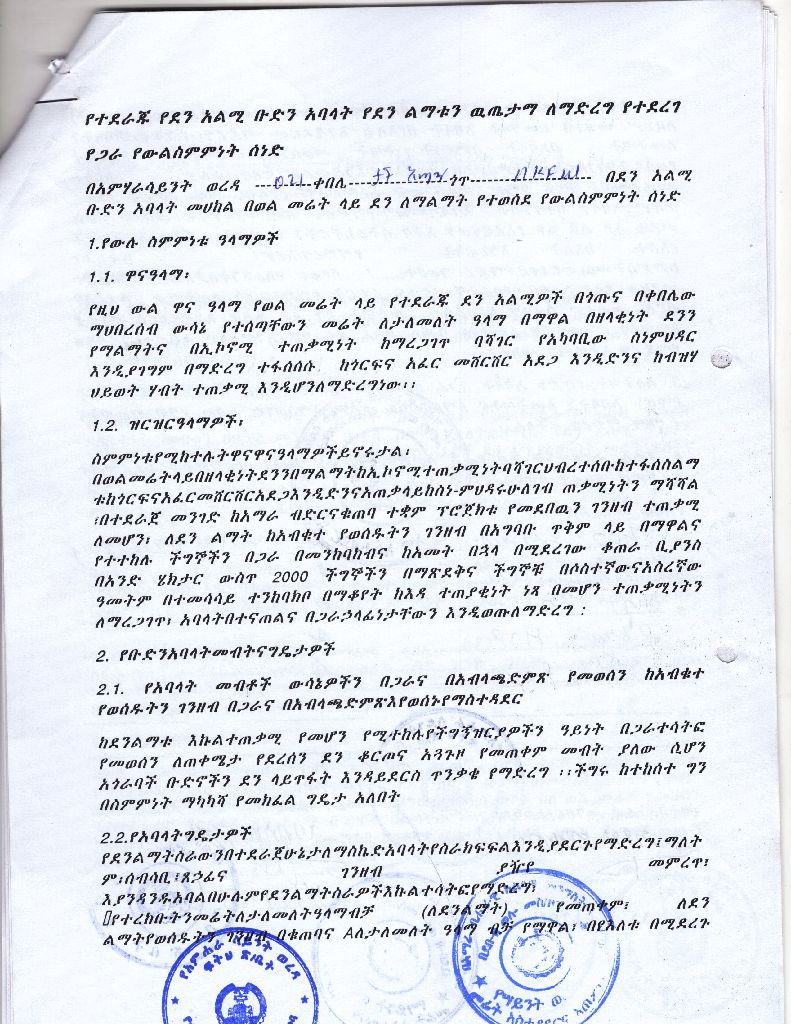 የተደራጁ የደን አልሚ ቡድን አባላት የደን ልማቱን ዉጤታማ ለማድረግ የተደረገ
የጋራ የውልስምምነት ሰነድ
በአምሃራሳይንት ወረዳ 021 ቀበሌ ጎጥ በደን አልሚ
ቡድን አባላት መሀከል በወል መሬት ላይ ደን ለማልማት የተወሰደ የውልስምምነት ሰነድ
1.የውሉ ስምምነቱ ዓላማዎች
1.1. ዋናዓላማ፡
የዚህ ውል ዋና ዓላማ የወል መሬት ላይ የተደራጁ ደን አልሚዎች በጎጡና በቀበሌው
ማህበረሰብ ውሳኔ የተሰጣቸውን መሬት ለታለመለት ዓላማ በማዋል በዘላቂነት ደንን
የማልማትና በኢኮኖሚ ተጠቃሚነት ከማረጋገጥ ባሻገር የአካባቢው ስነምህዳር
እንዲያገግም በማድረግ ተፋሰሰሱ ከጎርፍና አፈር መሸርሸር አደጋ እንዲድንና ከብዝሃ
ህይወት ሃብት ተጠቃሚ እንዲሆንለማድረግነው፡፡
1.2. ዝርዝርዓላማዎች፡
ስምምነቱየሚከተሉትዋናዋናዓላማዎችይኖሩታል፡
በወልመሬትላይበዘላቂነትደንንበማልማትከኢኮኖሚተጠቃሚነትባሻገርህብረተሰቡከተፋሰስልማ
ቱከጎርፍናአፈርመሸርሸርአደጋእንዲድንናአጠቃላይከስነ-ምህዳሩሁለገብ ጠቃሚነትን ማሻሻል
፡በተደራጀ መንገድ ከአማራ ብድርናቁጠባ ተቋም ፕሮጀክቱ የመደበዉን ገንዘብ ተጠቃሚ
ለመሆን፣ ለደን ልማት ከአብቁተ የወሰዱትን ገንዘብ በአግባቡ ጥቅም ላይ በማዋልና
የተተከሉ ችግኞችን በጋራ በመንከባከብና ከአመት በኋላ በሚደረገው ቆጠራ ቢያንስ
በአንድ ሄክታር ውስጥ 2000 ችግኞችን በማጽደቅና ችግኞቹ በሶስተኛውናአስረኛው
ዓመትም በተመሳሳይ ተንከባክቦ በማቆየት ከእዳ ተጠያቂነት ነጻ በመሆን ተጠቃሚነትን
ለማረጋገጥ፣ አባላትበተናጠልና በጋራኃላፊነታቸውን እንዲወጡለማድረግ :
2. የቡድንአባላትመብትናግዴታዎች
2.1. የአባላት መብቶች ውሳኔዎችን በጋራና በአብላጫድምጽ የመወሰን ከአብቁተ
የወሰዱትን ገንዘብ በጋራና በአብላጫድምጽእየወሰኑየማስተዳደር
ከደንልማቱ እኩልተጠቃሚ የመሆን የሚተከሉየችግኝዝርያዎችን ዓይነት በጋራተሳትፎ
የመወሰን ለጠቀሜታ የደረሰን ደን ቆርጦና አጓጉዞ የመጠቀም መብት ያለው ሲሆን
አጎራባች ቡድኖችን ደን ላይጥፋት እንዳይደርስ ጥንቃቄ የማድረግ ፡፡ችግሩ ከተከሰተ ግን
በስምምነት ማካካሻ የመክፈል ግዴታ አለበት
2.2.የአባላትግዴታዎች
የደንልማትስራውንበተደራጀሁኔታለማስኬድአባላትየስራክፍፍልእንዲያደርጉየማድረግ፤ማለት
ም፡ሰብሳቢ፡ጸኃፊና ገንዘብ ያዥየ መምረጥ፣
እያንዳንዱአባልበሁሉምየደንልማትስራዎችእኩልተሳትፎየማድረግ፣
የተረከቡትንመሬትለታለመለትዓላማብቻ (ለደንልማት) የመጠቀም፣ ለደን
ልማትየወሰዱትን ገንዘብ በቁጠባና Aለታለመለት ዓላማ ብቻ የማዋል፣ በየእለቱ በሚደረጉ
የአምሐራ ሳይንት ወረዳ
ፍትህ ጽ/ቤት